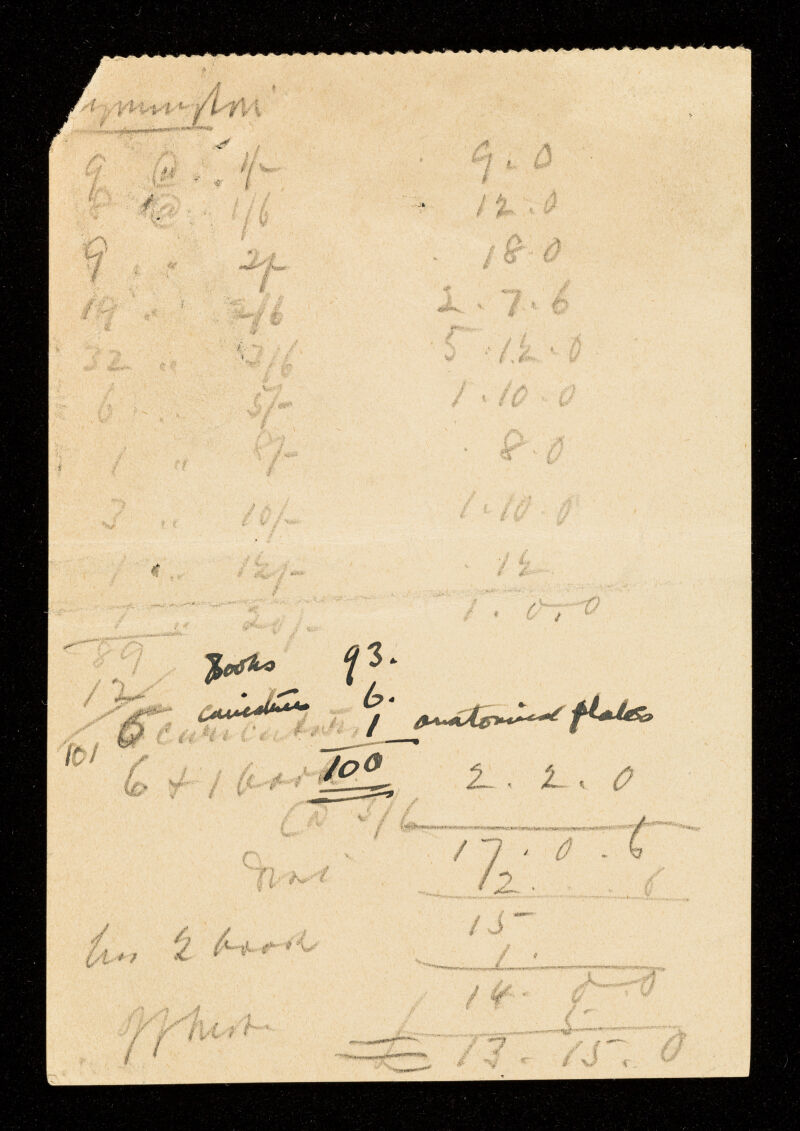 9 @ 1/- 9.0
8 @ 1/6 12.0
9 " 2/- 18.0
19 " 2/6 2.7.6
32 " 3/6 5.12.0
6 " 5/- 1.10.0
1 " 8/- 8.0
3 " 10/- 1.10.0
1 " 12/- 12
1 " 20/- 1.0.0
89
Books 93.
12
caricatures 6.
6 caricatures
1 anatomical plates
101
100
6 + 1 book 2.2.0
@ 3/6
17.0.6
2. 6
15
2 book 1.
14. 0.0
5
£ 13.15.0